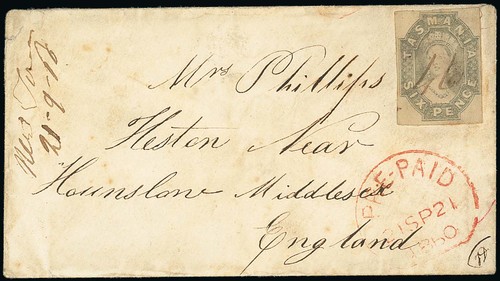 TASMANIA
SIX PENCE
Mrs Phillips
Heston Near
Hounslow Middlesex
England
PRE-PAID
21 SP 21
1860
New